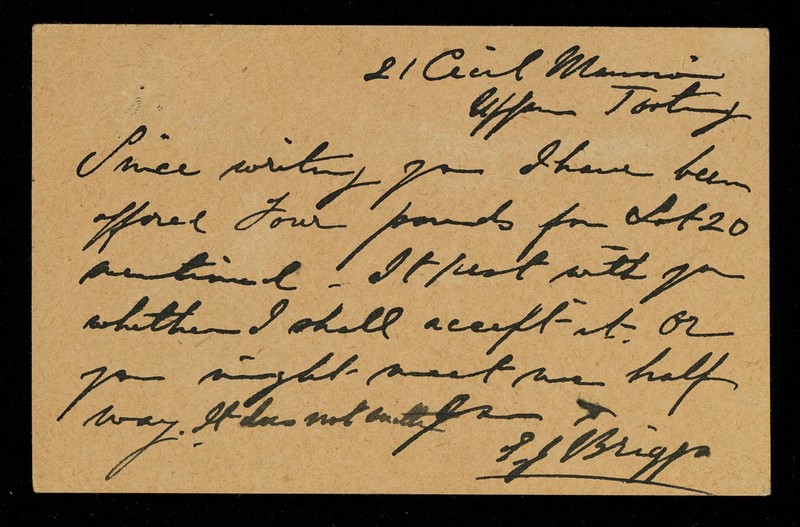 21 Cecil Mansion
Upper Tooting
Since writing you I have been
offered Four pounds for Lot 20
mentioned - It rest with you
whether I shall accept it. Or
you might meet me half
way. It does not matter
Briggs